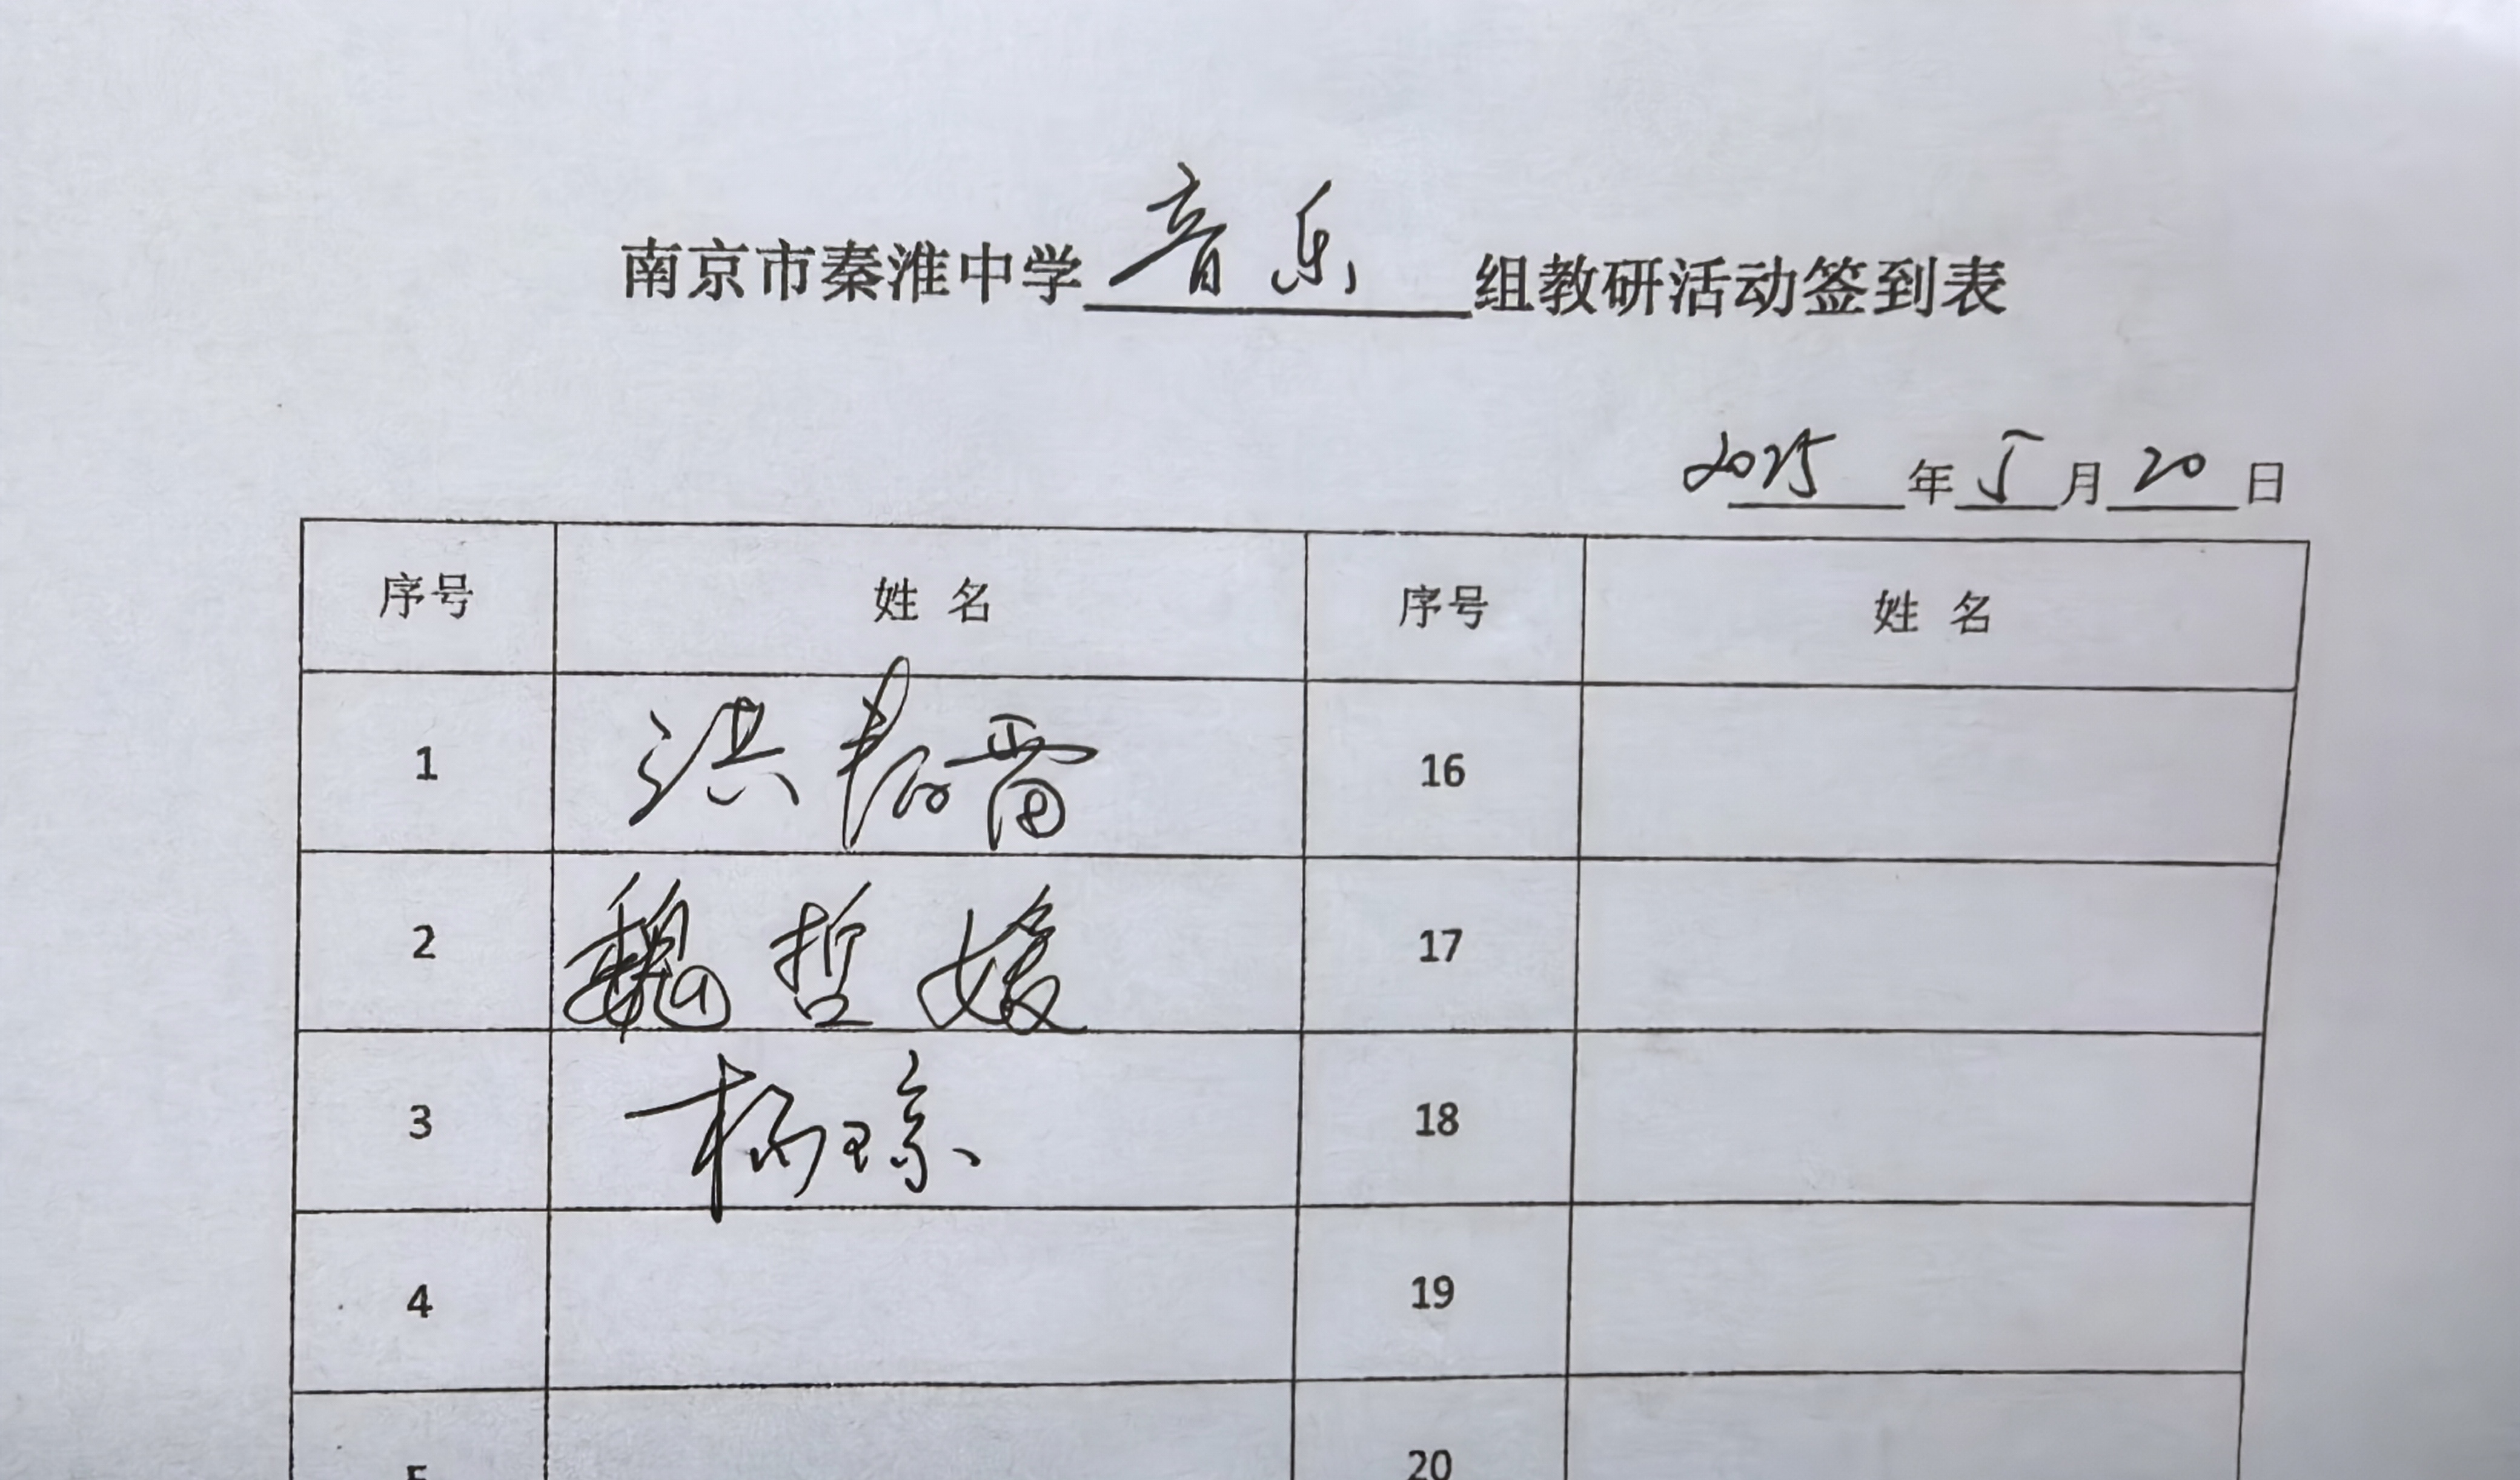 南京市秦淮中学 音乐 组教研活动签到表
2025 年 5 月 20 日
序号 姓 名 序号 姓 名
1 洪 16
2 魏哲媛 17
3 杨琼 18
4 19
5 20